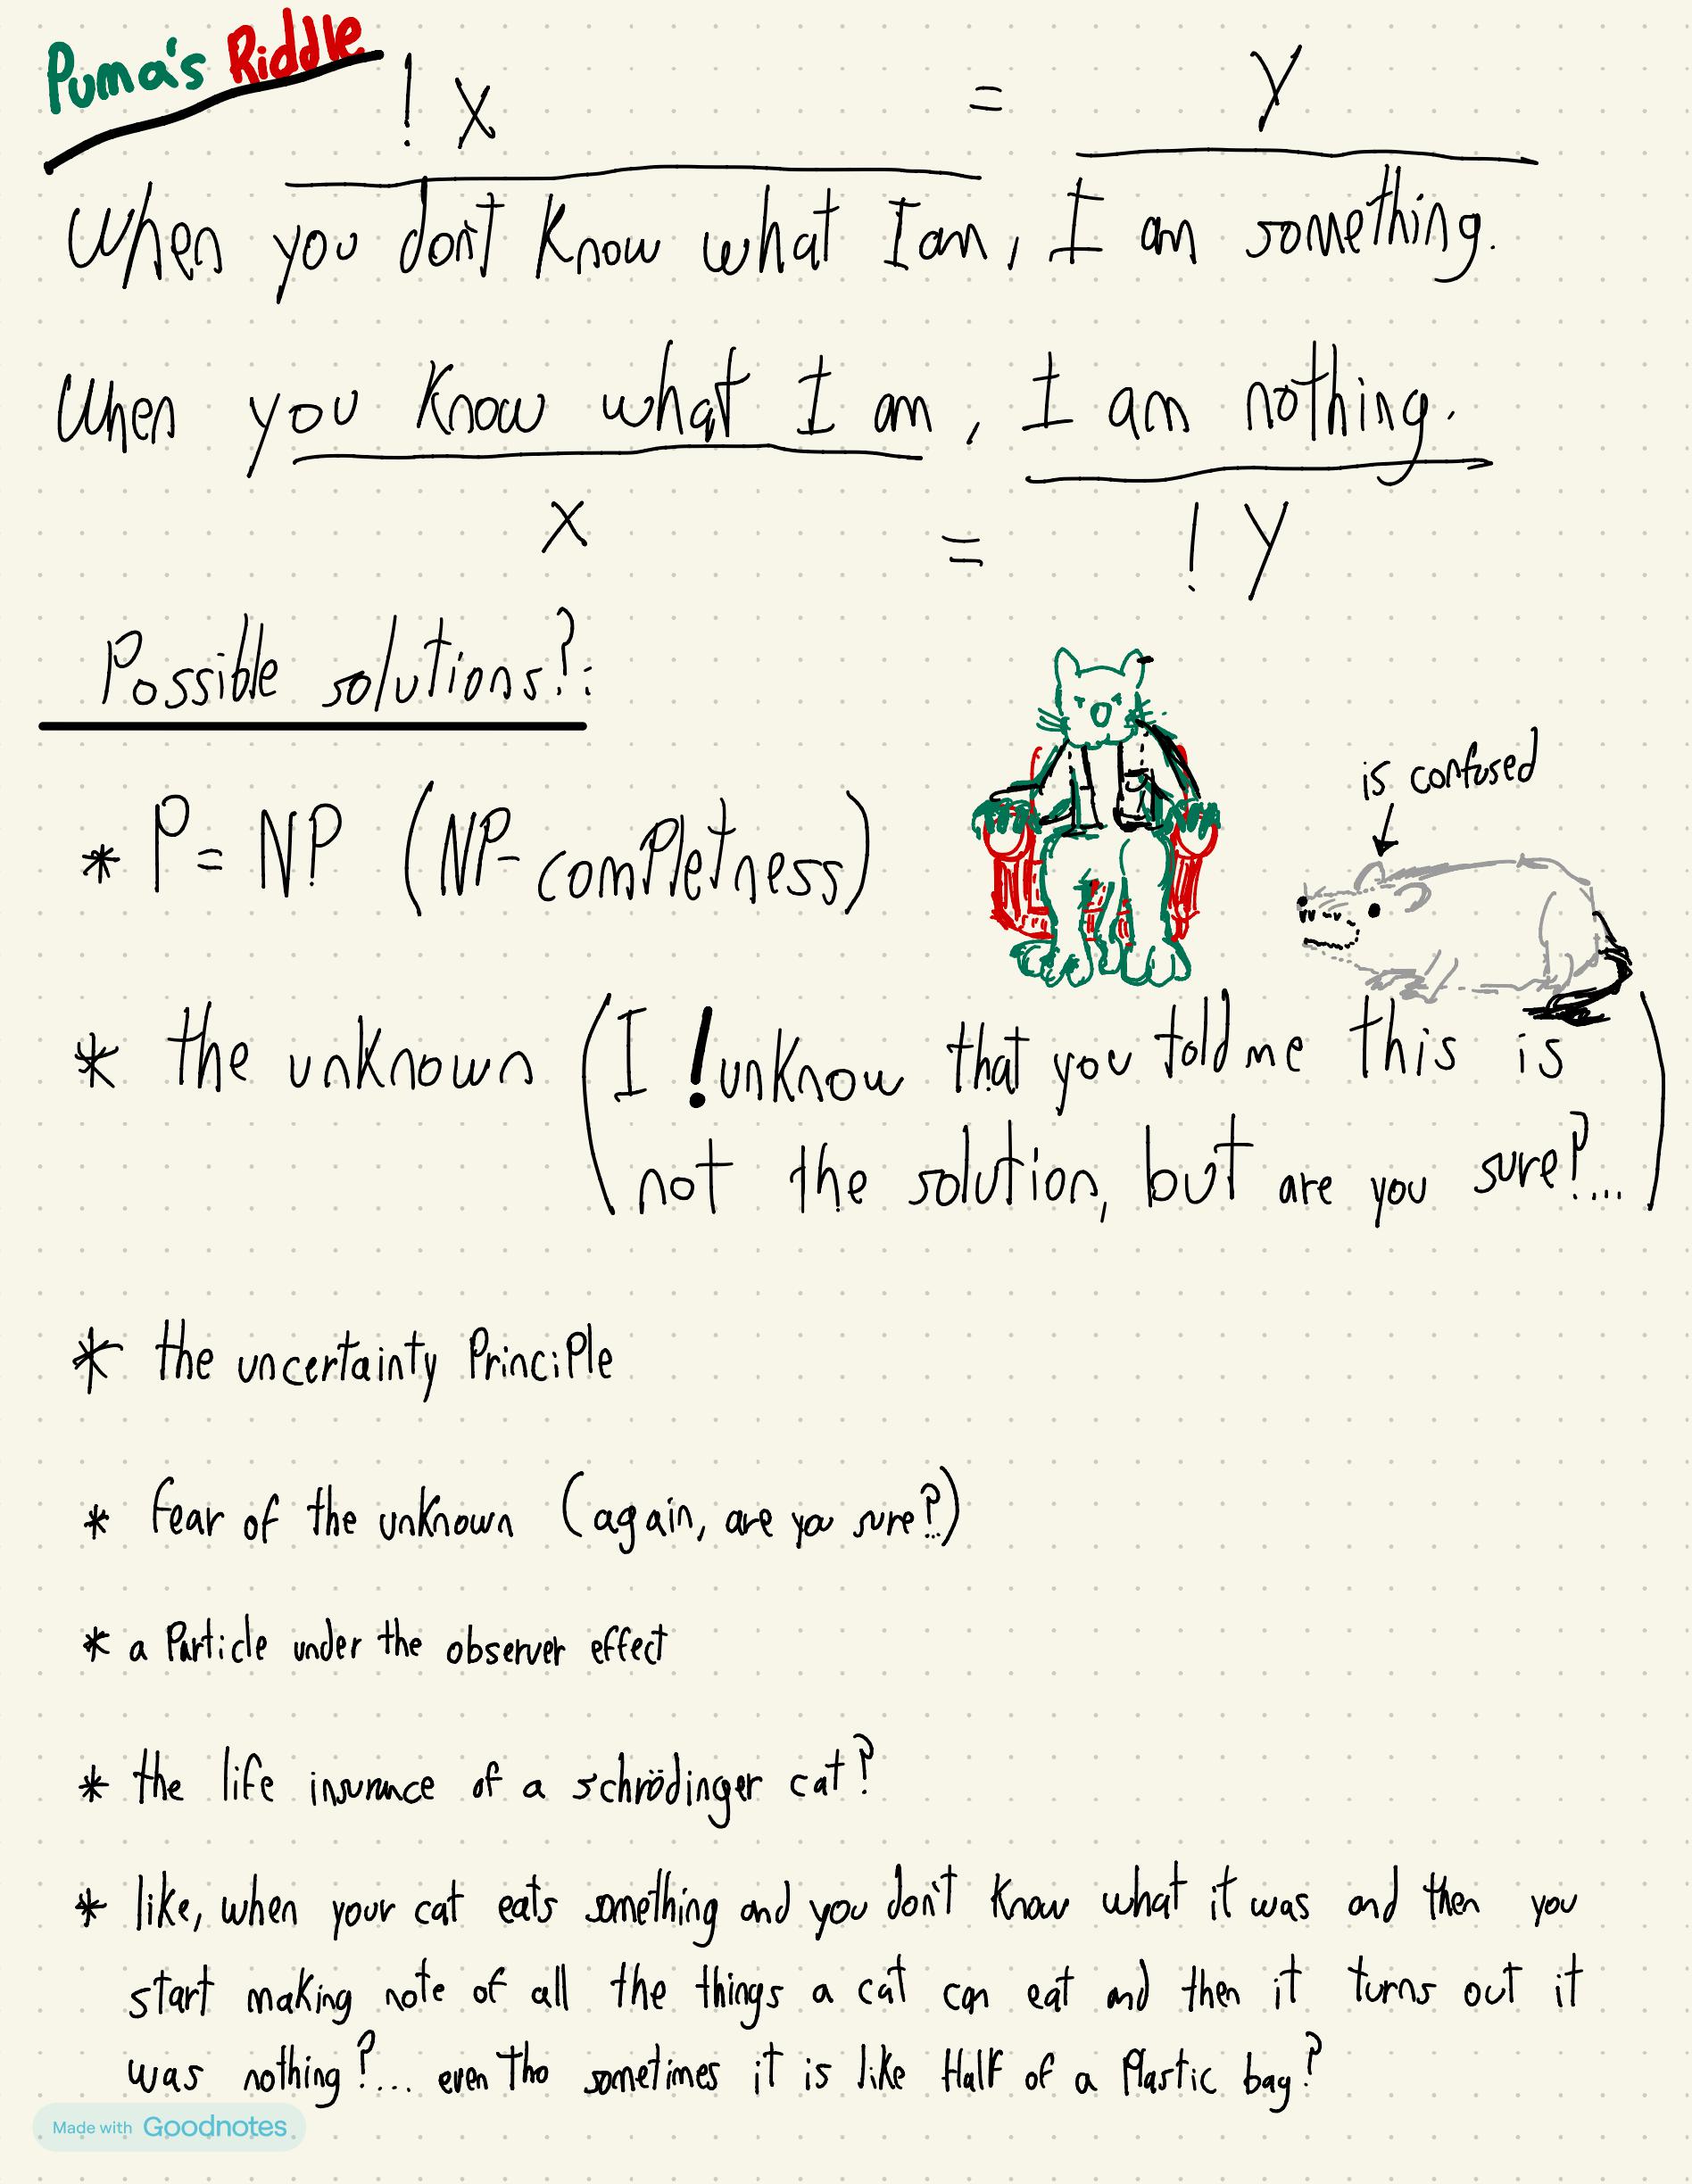 Puma's Riddle
! X = Y
When you don't know what I am, I am something.
When you know what I am, I am nothing.
X = ! Y
Possible solutions?:
* P = NP (NP-completness)
is confused
* the unknown (I ! unknow that you told me this is
not the solution, but are you sure?...)
* the uncertainty Principle
* fear of the unknown (again, are you sure?...)
* a Particle under the observer effect
* the life insurance of a schrödinger cat?
* like, when your cat eats something and you don't know what it was and then you
start making note of all the things a cat can eat and then it turns out it
was nothing?... even tho sometimes it is like Half of a Plastic bag?
Made with Goodnotes